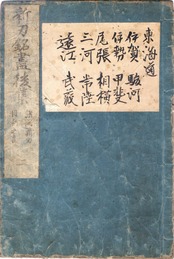 東海道
伊賀 駿河
伊勢 甲斐
尾張 相模
三河 常陸
遠江 武蔵
新刀銘盡後集